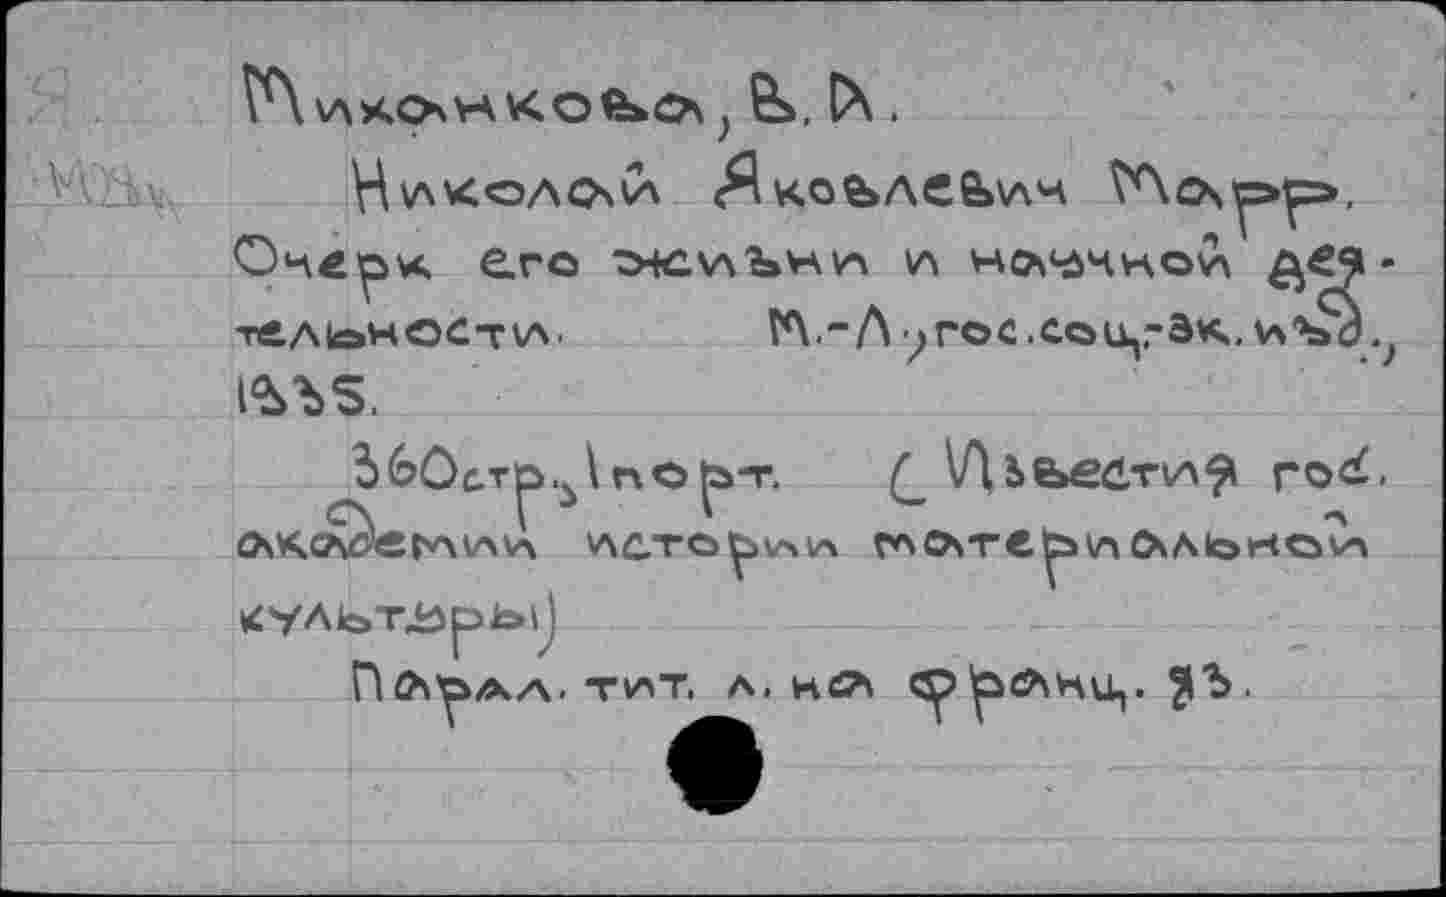 Миханкова, В. А.
Николай Яковлевич Марр.
Очерк его жизни и научной дея-
тельности. М.-Л., гос.соц.-эк. изд.,
1935.
360стр., 1 порт. (Известия гос.
академии истории материальной
культуры)
Паралл. тит. л. на франц. яз.